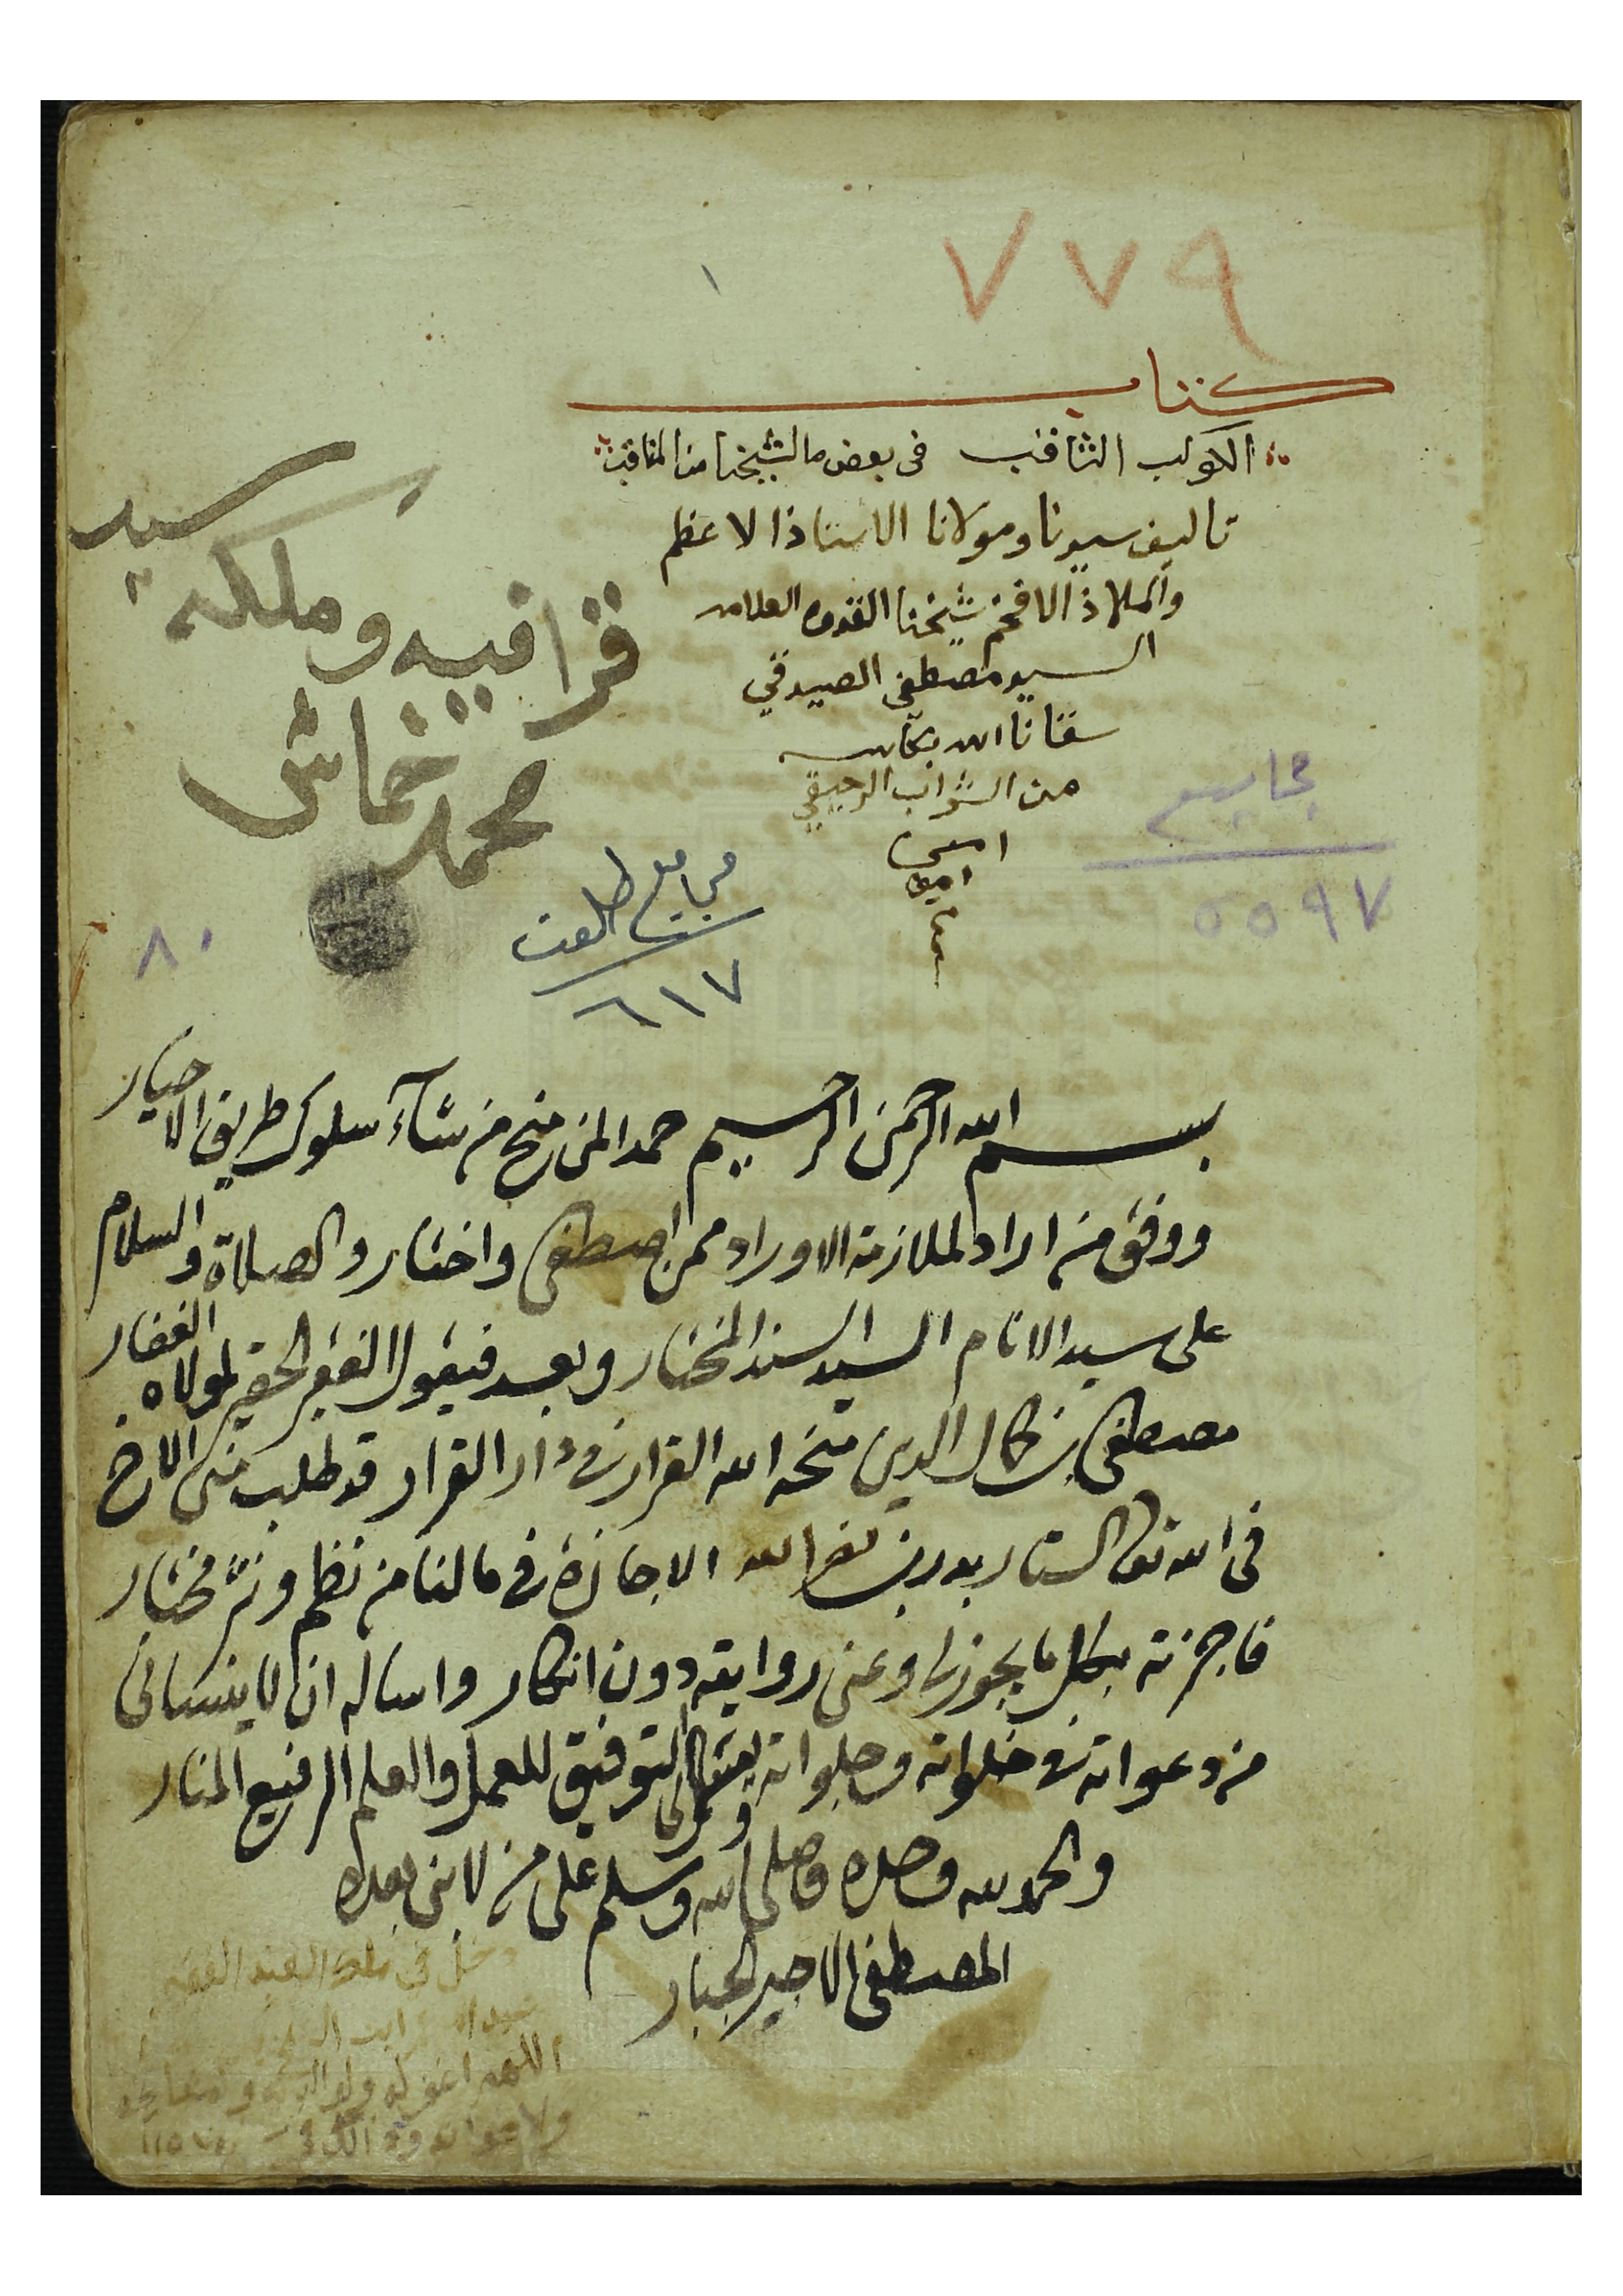 ٧٧٩
١
كتاب
الكوكب الثاقب فى بعض ما لشيخنا من المناقب
تاليف سيدنا ومولانا الاستاذ الاعظم
والملاذ الافخم شيخنا القدوه العلامه
السيد مصطفى الصديقي
سقانا الله بكاسه
من الشراب الرحيقي
امين
امين
سيد
قرا فيه وملكه
محمد خماش
مجاميع
٥٥٩٧
مجاميع طلعت
٦١٧
٨٠
بسم الله الرحمن الرحيم حمدا لمن منح من شآء سلوك طريق الاخيار
ووفق من اراد لملازمة الاوراد ممن اصطفى واختار والصلاة والسلام
على سيد الانام السيد السند المختار وبعد فيقول الفقير الحقير لمولاه الغفار
مصطفى بن كمال الدين منحه الله القرار فى دار القرار قد طلب منى الاخ
فى الله تعالى الستار بدر بن نصر الله الاجازة فى ما لنا من نظم ونثر مختار
فاجزته بكل ما يجوز لى وعنى روايته دون انكار واساله ان لا ينسانى
من دعواته فى خلواته وجلواته بكمال التوفيق للعمل والعلم الرفيع المنار
والحمد لله وحده وصلى الله وسلم على من لا نبى بعده
المصطفى الاجير الجبار
دخل في ملك العبد الفقير
اللهم اغفر له ولوالديه ولمشايخه
ولاخوانه وذالك في